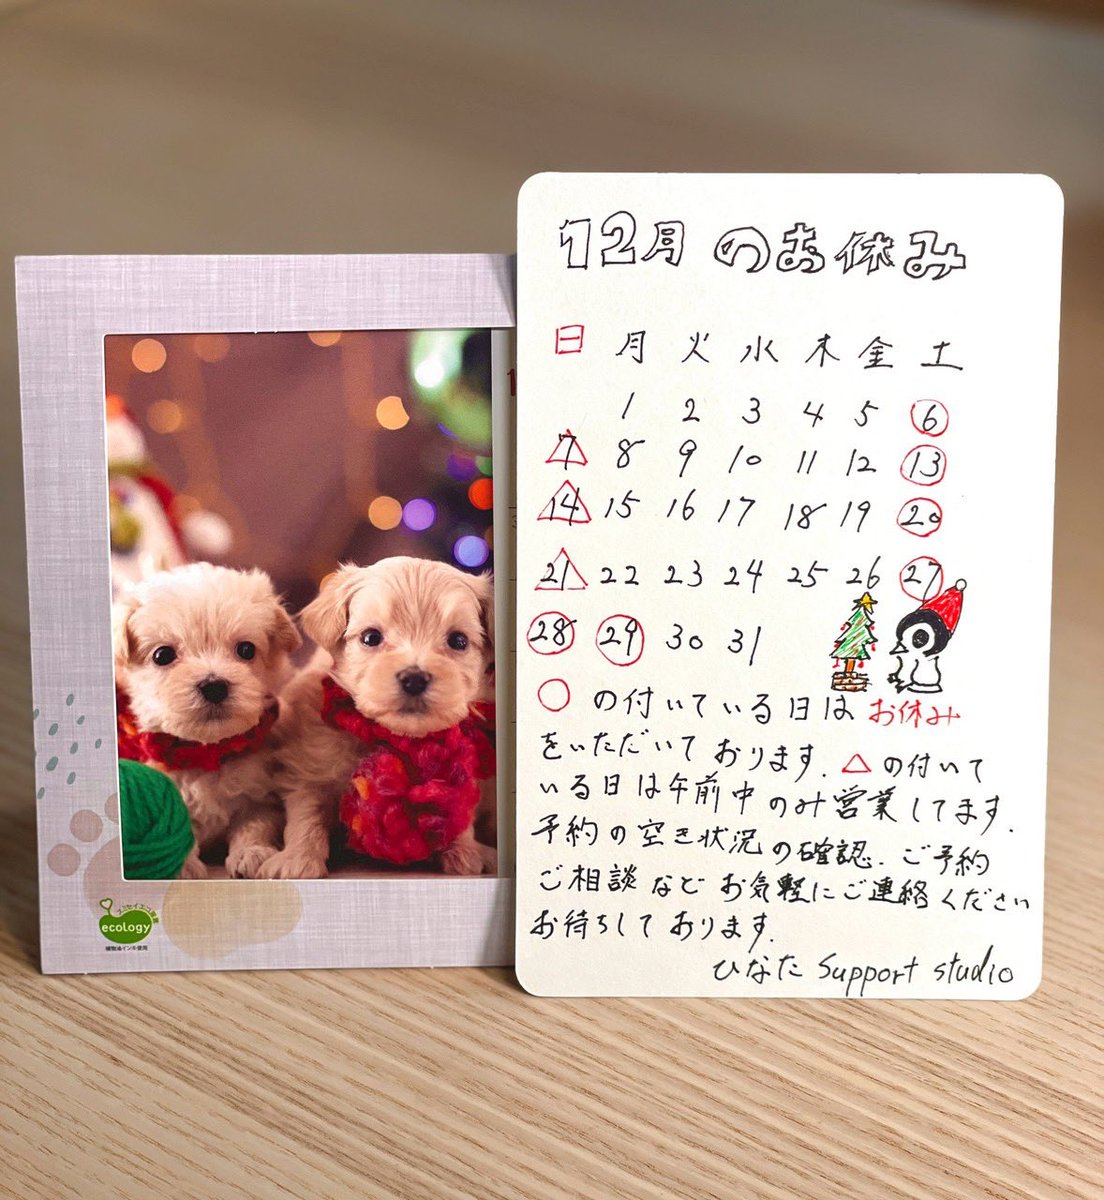 12月のお休み
日 月 火 水 木 金 土
1 2 3 4 5 6
7 8 9 10 11 12 13
14 15 16 17 18 19 20
21 22 23 24 25 26 27
28 29 30 31
○の付いている日はお休み
をいただいております. △の付いて
いる日は午前中のみ営業してます.
予約の空き状況の確認. ご予約
ご相談などお気軽にご連絡ください
お待ちしております.
ひなた Support studio
ecology
植物油インキ使用